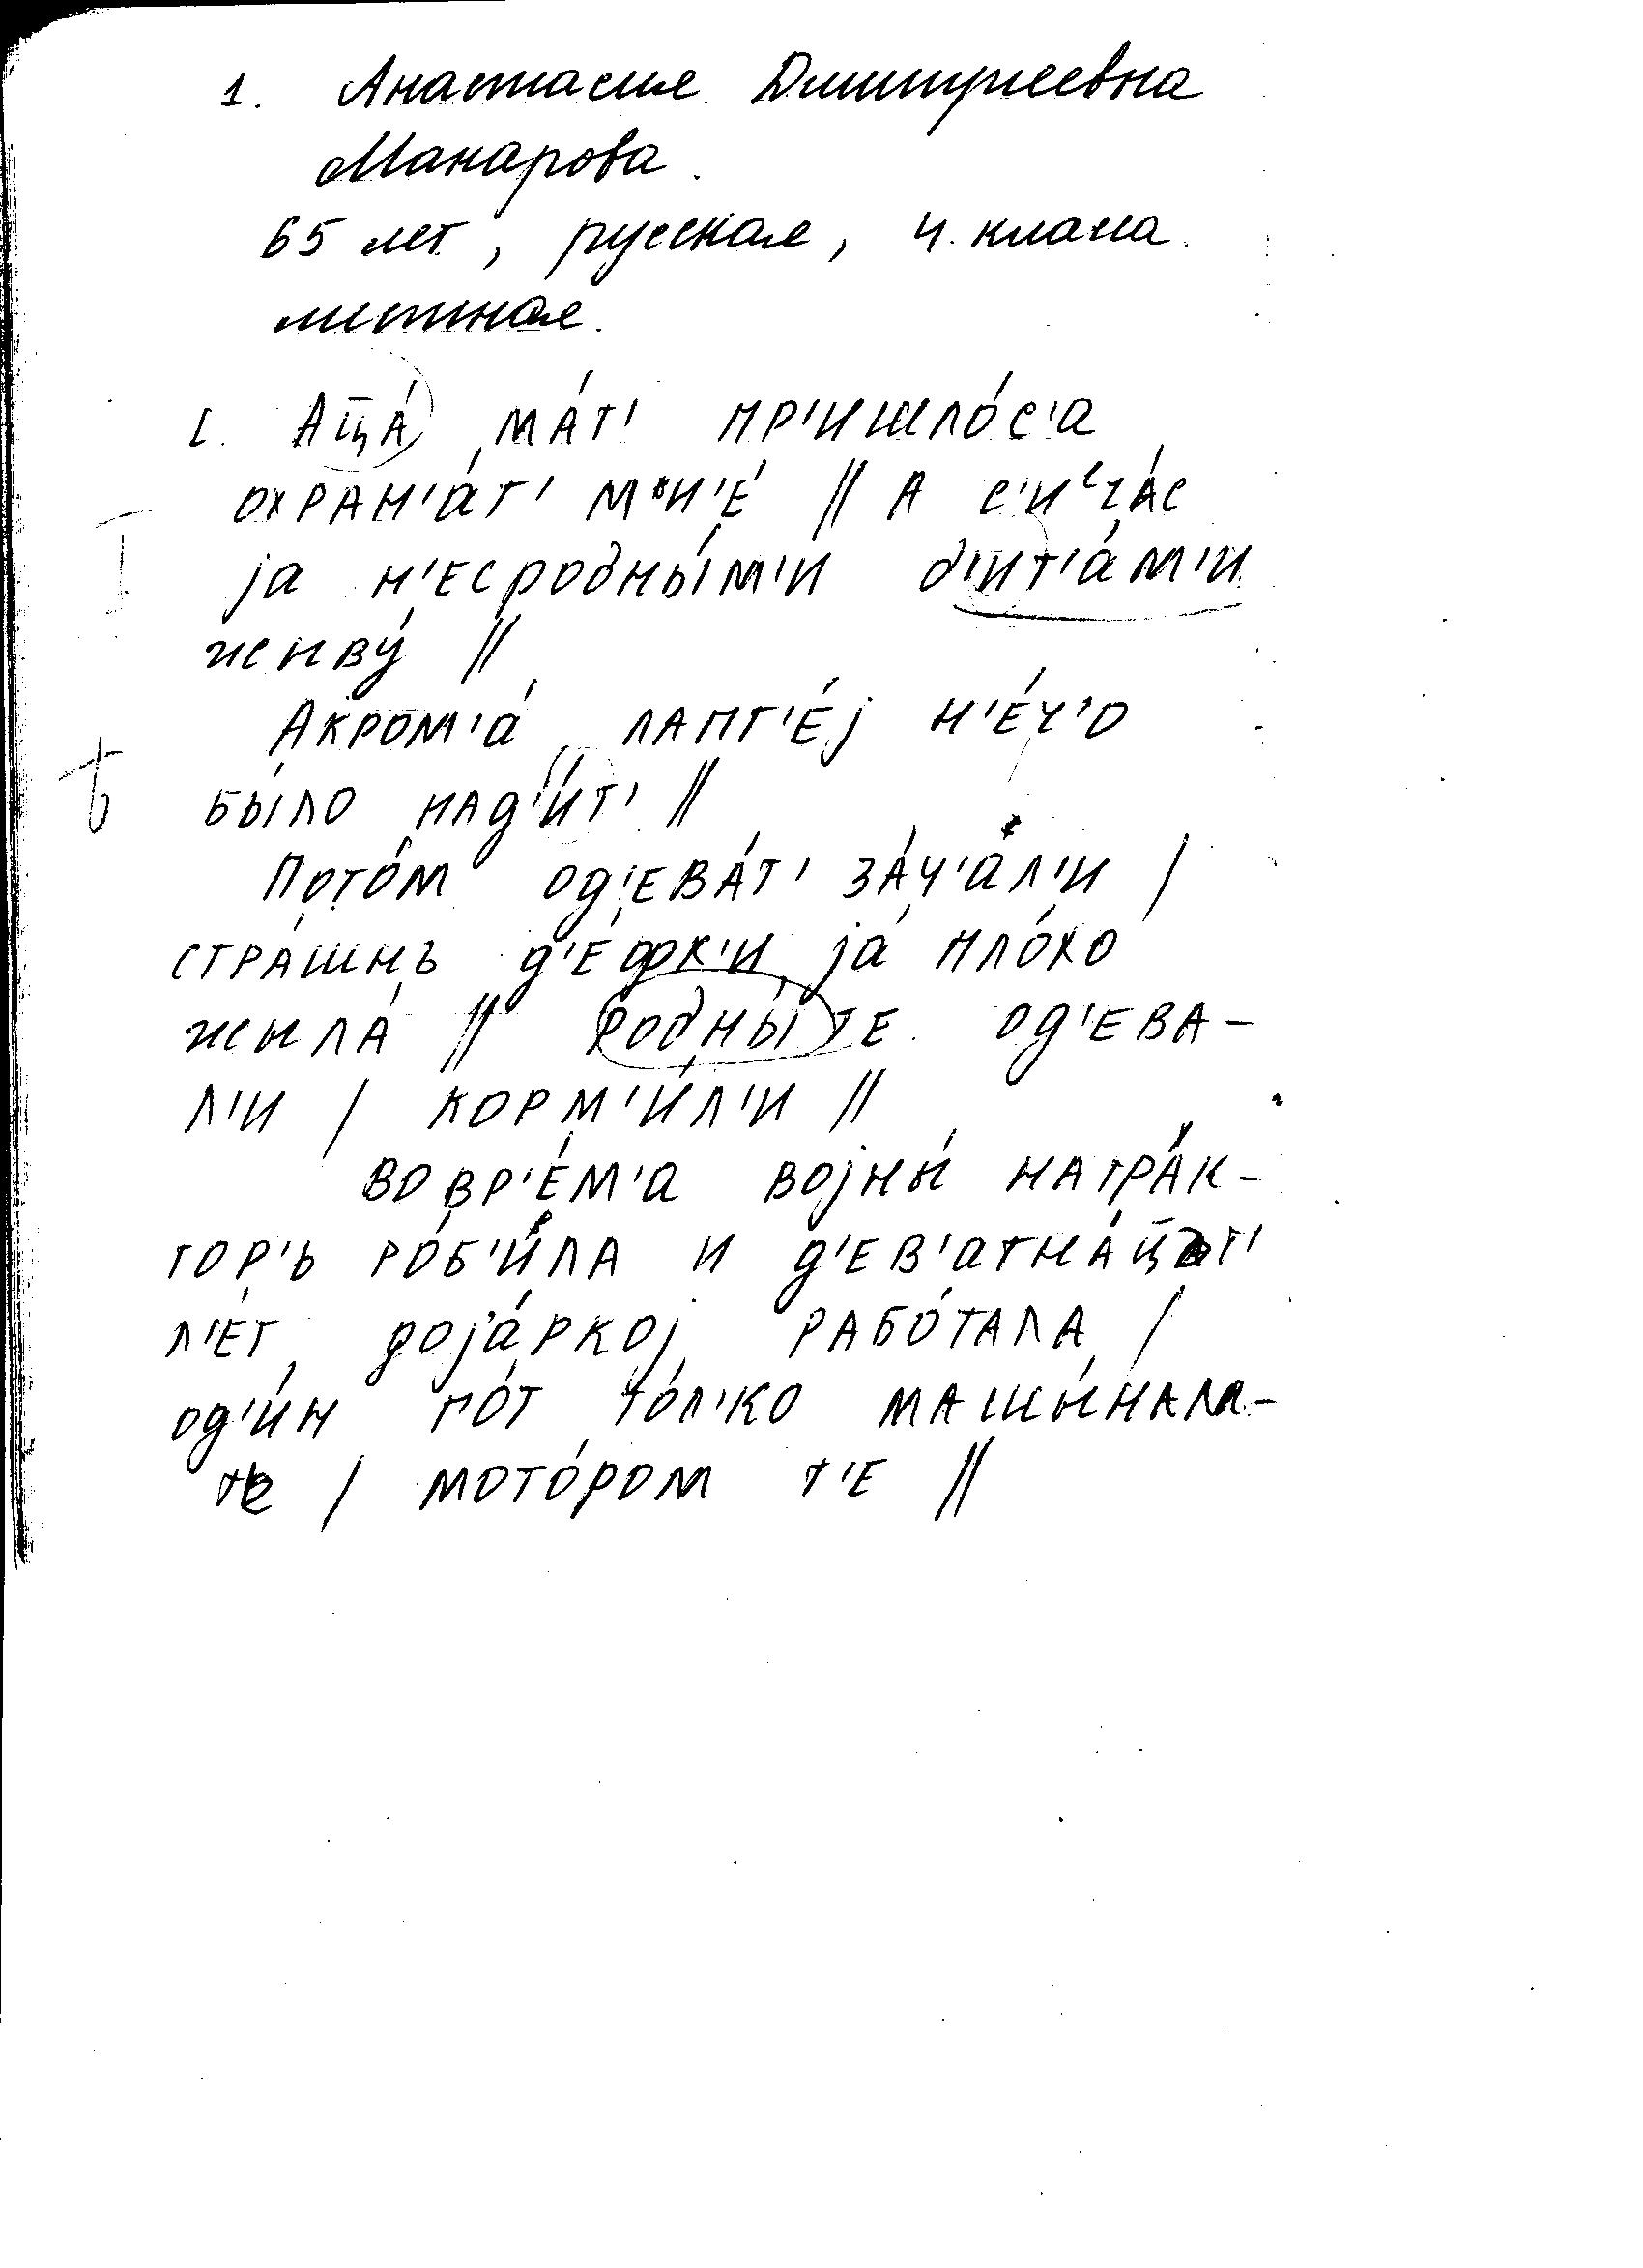 1. Анастасия Дмитриевна
Макарова.
65 лет, русская, 4 класса
местная.
1. Ац̄а́ ма́т' пр'ишло́с'а
охран'а́т' мън'е́ // а с'ича́с
jа н'есродны́м'и д'ит'а́м'и
жыву́ //
Акром'а́ лапт'е́j н'е́ч'о
бы́ло над'и́т' //
Пото́м од'ева́т' за́ч'ал'и /
стра́шнъ д'е́фк'и jа́ пло́хо
жыла́ // родны́ те од'ева-
л'и / корм'и́л'и //
во вр'е́м'а воjны́ на тра́к-
тор'ь ро́б'ила и д'ев'атна́ц̄ът'
л'е́т доjа́ркоj рабо́тала /
од'и́н го́т то́л'ко машы́нала-
те / мото́ром т'е //